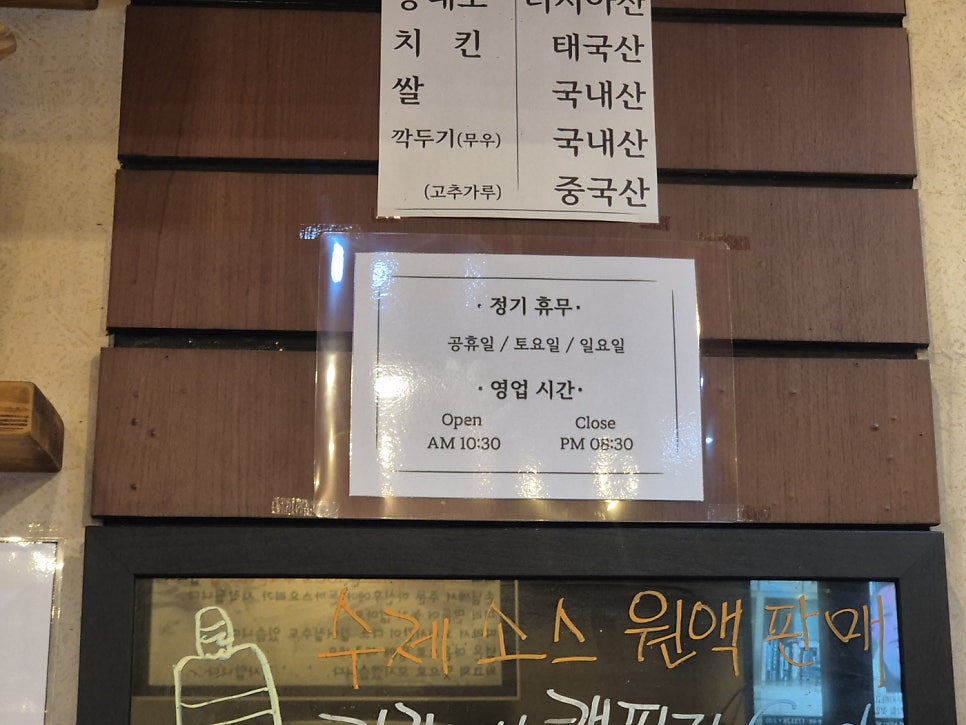 치 킨 태국산
쌀 국내산
깍두기(무우) 국내산
(고추가루) 중국산
· 정기 휴무·
공휴일 / 토요일 / 일요일
· 영업 시간·
Open Close
AM 10:30 PM 08:30
수제 소스 원액 판매